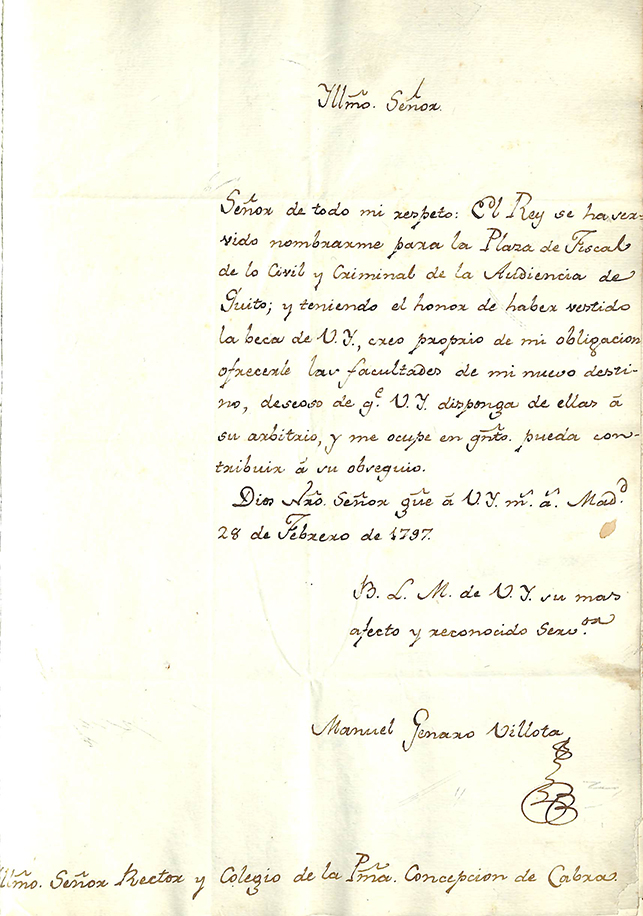 Yllm̃o. Señor.
Señor de todo mi respeto: El Rey se ha ser-
vido nombrarme para la Plaza de Fiscal
de lo Civil y Criminal de la Audiencia de
Quito; y teniendo el honor de haber vestido
la beca de V.Y., creo proprio de mi obligacion
ofrecerle las facultades de mi nuevo desti-
no, deseoso de q.e V.Y. disponga de ellas á
su arbitrio, y me ocupe en qñto. pueda con-
tribuir á su obsequio.
Dios Nr̃o. Señor gũe á V.Y. m.s a.s Mad.d
28 de Febrero de 1797.
B. L. M. de V.Y. su mas
afecto y reconocido Serv.or
Manuel Genaro Villota
Yllm̃o. Señor Rector y Colegio de la Pm̃a. Concepcion de Cabra.